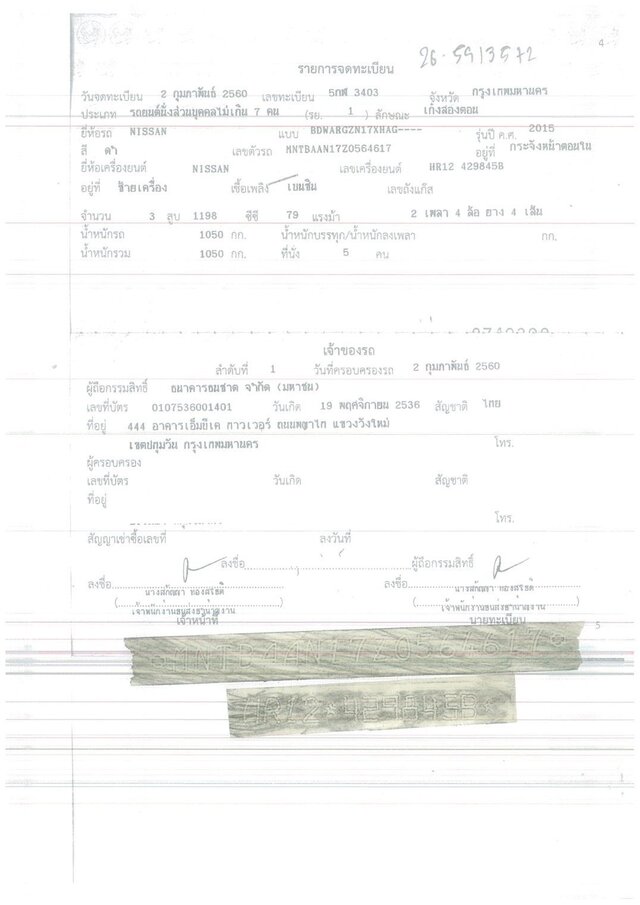 26-5913572
4
รายการจดทะเบียน
วันจดทะเบียน 2 กุมภาพันธ์ 2560 เลขทะเบียน 5กศ 3403 จังหวัด กรุงเทพมหานคร
ประเภท รถยนต์นั่งส่วนบุคคลไม่เกิน 7 คน (รย. 1 ) ลักษณะ เก๋งสองตอน
ยี่ห้อรถ NISSAN แบบ BDWARGZN17XHAG---- รุ่นปี ค.ศ. 2015
สี ดำ เลขตัวรถ MNTBAAN17Z0564617 อยู่ที่ กระจังหน้าตอนใน
ยี่ห้อเครื่องยนต์ NISSAN เลขเครื่องยนต์ HR12 429845B
อยู่ที่ ซ้ายเครื่อง เชื้อเพลิง เบนซิน เลขถังแก๊ส
จำนวน 3 สูบ 1198 ซีซี 79 แรงม้า 2 เพลา 4 ล้อ ยาง 4 เส้น
น้ำหนักรถ 1050 กก. น้ำหนักบรรทุก/น้ำหนักลงเพลา กก.
น้ำหนักรวม 1050 กก. ที่นั่ง 5 คน
เจ้าของรถ
ลำดับที่ 1 วันที่ครอบครองรถ 2 กุมภาพันธ์ 2560
ผู้ถือกรรมสิทธิ์ ธนาคารธนชาต จำกัด (มหาชน)
เลขที่บัตร 0107536001401 วันเกิด 19 พฤศจิกายน 2536 สัญชาติ ไทย
ที่อยู่ 444 อาคารเอ็มบีเค ทาวเวอร์ ถนนพญาไท แขวงวังใหม่
เขตปทุมวัน กรุงเทพมหานคร โทร.
ผู้ครอบครอง
เลขที่บัตร วันเกิด สัญชาติ
ที่อยู่
โทร.
สัญญาเช่าซื้อเลขที่ ลงวันที่
ลงชื่อ ผู้ถือกรรมสิทธิ์
ลงชื่อ ลงชื่อ
เจ้าพนักงานขนส่งชำนาญงาน เจ้าพนักงานขนส่งชำนาญงาน
เจ้าหน้าที่ นายทะเบียน
5